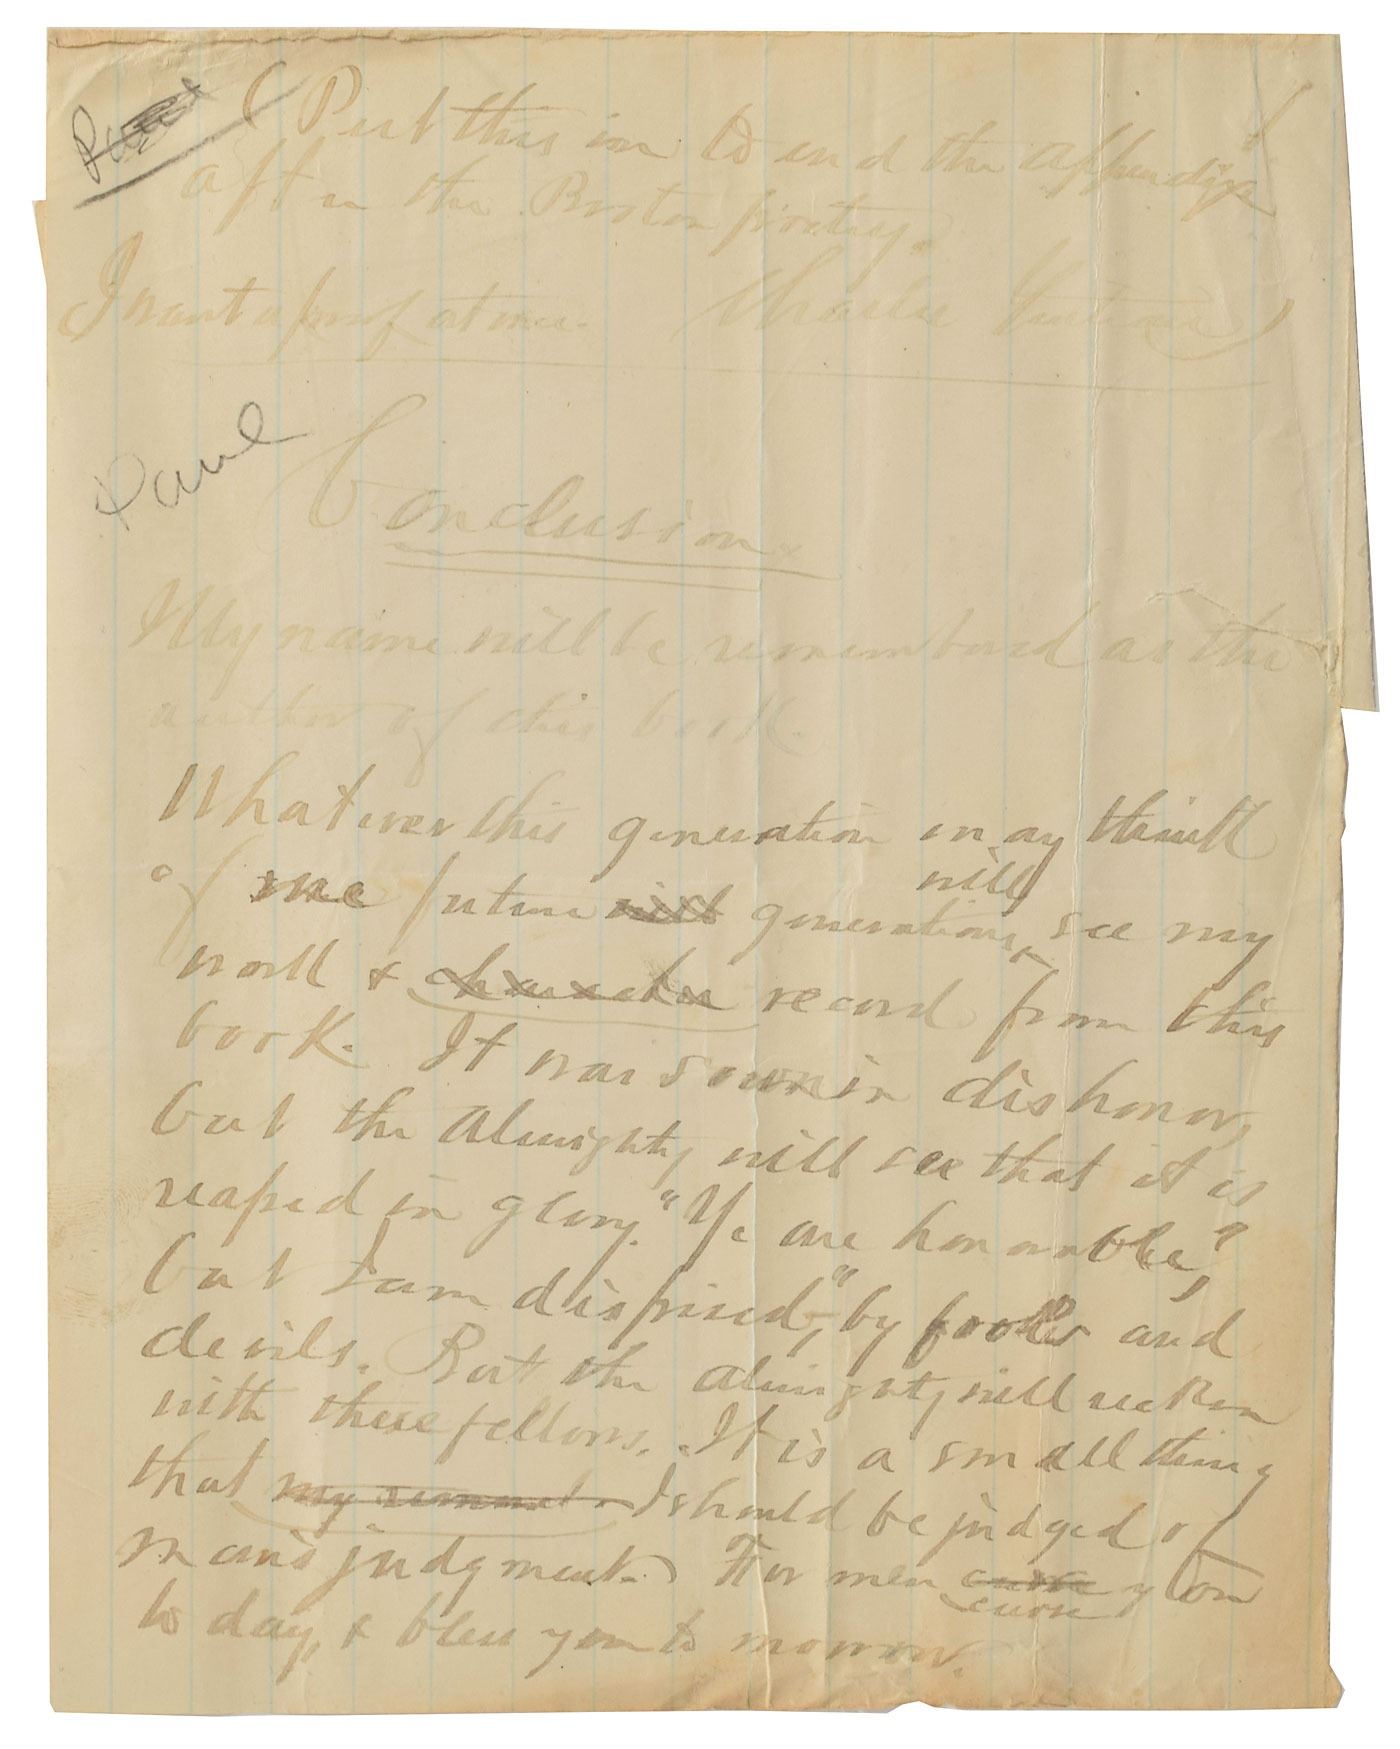 (Put this in to end the appendix
after the Boston poetry.
I want a proof at once. Charles Guiteau)
Paul
Conclusion.
My name will be remembered as the
author of this book.
Whatever this generation may think
will
of me future will generations see my
work & character record from this
book. It was sown in dishonor,
but the Almighty will see that it is
reaped in glory. "Ye are honorable,
but I am dispised," by fools and
devils. But the Almighty will reckon
with these fellows. It is a small thing
that I should be judged of
man's judgment. For men curse you
curse
to day, & bless you to morrow.